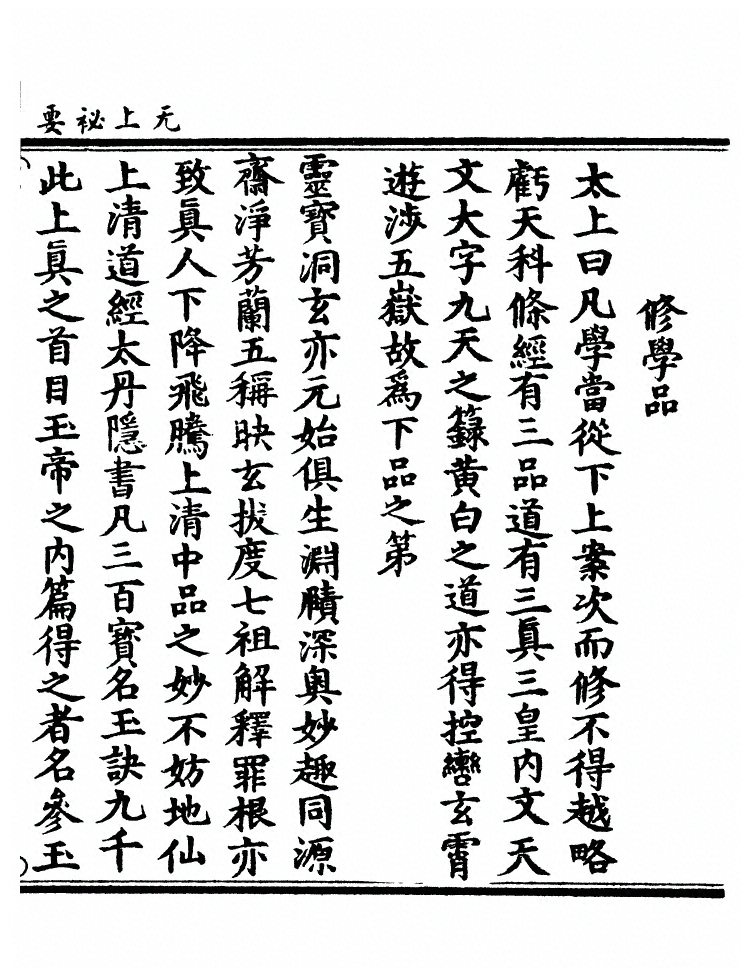 无上祕要
修學品
太上曰凡學當從下上案次而修不得越略
虧天科條經有三品道有三眞三皇内文天
文大字九天之籙黄白之道亦得控轡玄霄
遊涉五嶽故爲下品之第
靈寶洞玄亦元始俱生淵賾深奥妙趣同源
齋淨芳蘭五稱昳玄拔度七祖解釋罪根亦
致眞人下降飛騰上清中品之妙不妨地仙
上清道經太丹隱書凡三百寶名玉訣九千
此上眞之首目玉帝之内篇得之者名參玉